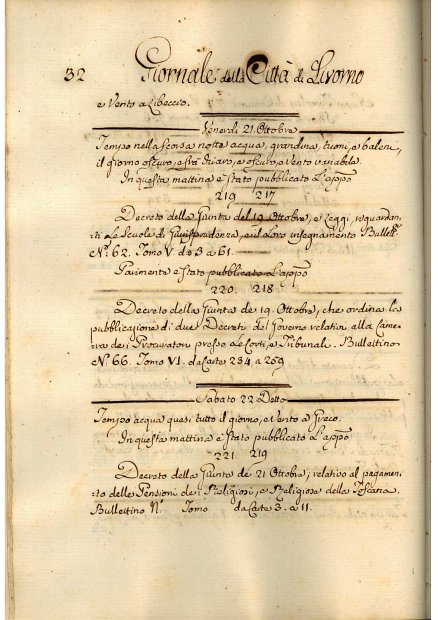 32 Giornale della Città di Livorno
e Vento a Libeccio.
Venerdi 21. Ottobre
Tempo nella scorsa notte acqua, grandina, tuoni, e baleni,
il giorno oscuro, e fra chiaro, e oscuro, e Vento variabile.
In questa mattina è stato pubblicato l'appo
219 217
Decreto della Giunta del 19. Ottobre, e Leggi, riguardan-
ti Le Scuole di Giurisprudenza, e il Loro insegnamento Bullett.
N.º 62. Tomo V. da 3 a 61.
Parimente è stato pubblicato L'appo
220. 218.
Decreto della Giunta de' 19. Ottobre, che ordina la
pubblicazione di due Decreti del Governo relativi alla Came-
ra de i Procuratori presso Le Corti, e Tribunali. Bullettino
N.º 66. Tomo VI. da Carte 234 a 259
Sabato 22 Detto
Tempo acqua quasi tutto il giorno, e Vento a Greco.
In questa mattina è stato pubblicato L'appo
221 219
Decreto della Giunta de' 21 Ottobre, relativo al pagamen-
to delle Pensioni de i Religiosi, e Religiose della Toscana.
Bullettino N.º Tomo da Carte 3. a 11.